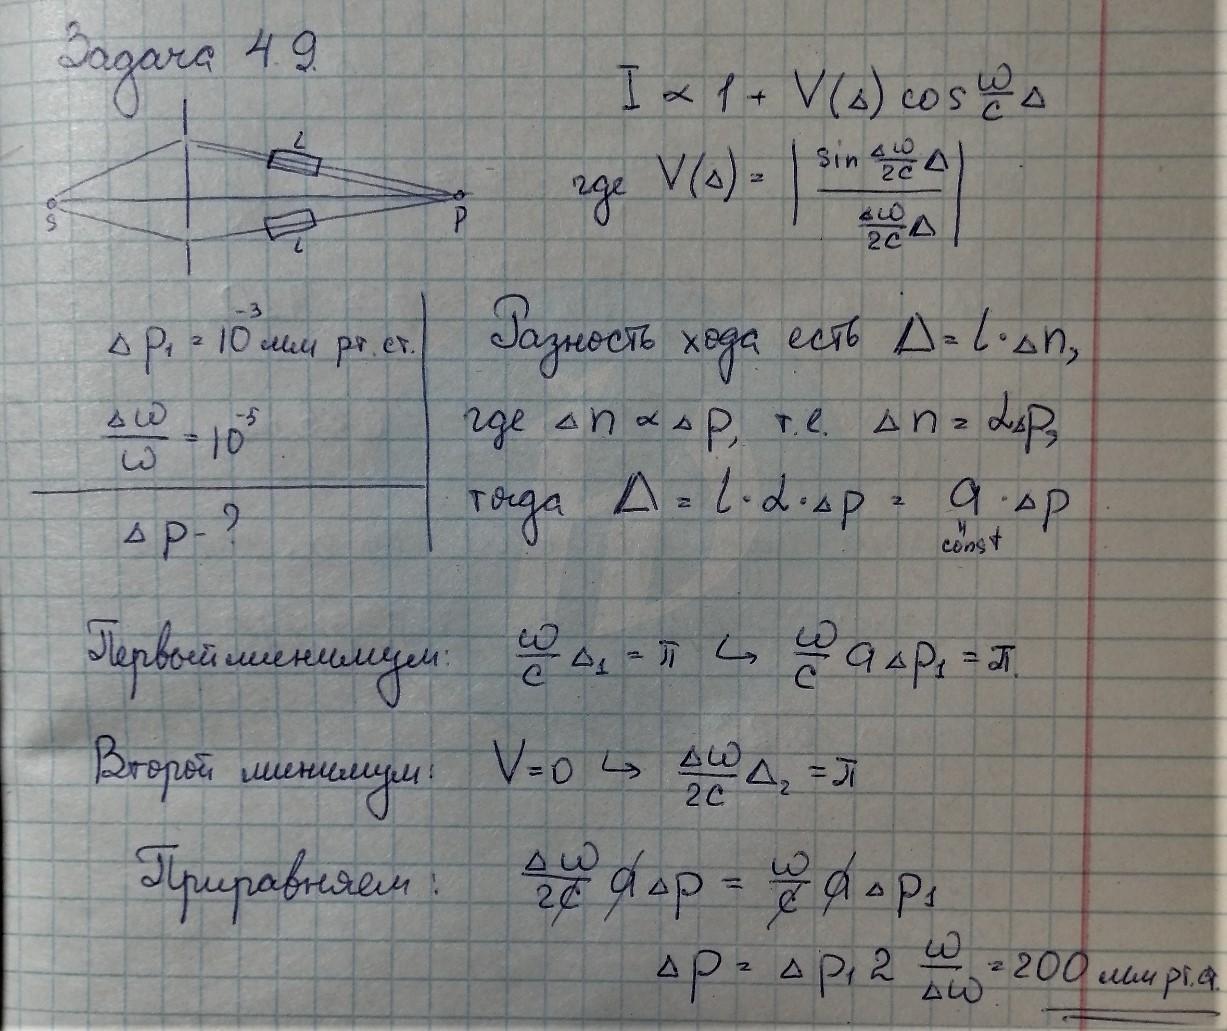 Задача 4.9.
I ∝ 1 + V(Δ) cos ω/c Δ
где V(Δ) = | sin Δω/2c Δ / Δω/2c Δ |
S
L
L
P
Δp₁ = 10⁻³ мм рт. ст.
Δω/ω = 10⁻⁵
Δp - ?
Разность хода есть Δ = l · Δn,
где Δn ∝ Δp, т.е. Δn = αΔp,
тогда Δ = l · α · Δp = a · Δp
const
Первый минимум: ω/c Δ₁ = π ↪ ω/c a Δp₁ = π.
Второй минимум: V = 0 ↪ Δω/2c Δ₂ = π
Приравняем: Δω/2c a Δp = ω/c a Δp₁
Δp = Δp₁ 2 ω/Δω = 200 мм рт.ст.